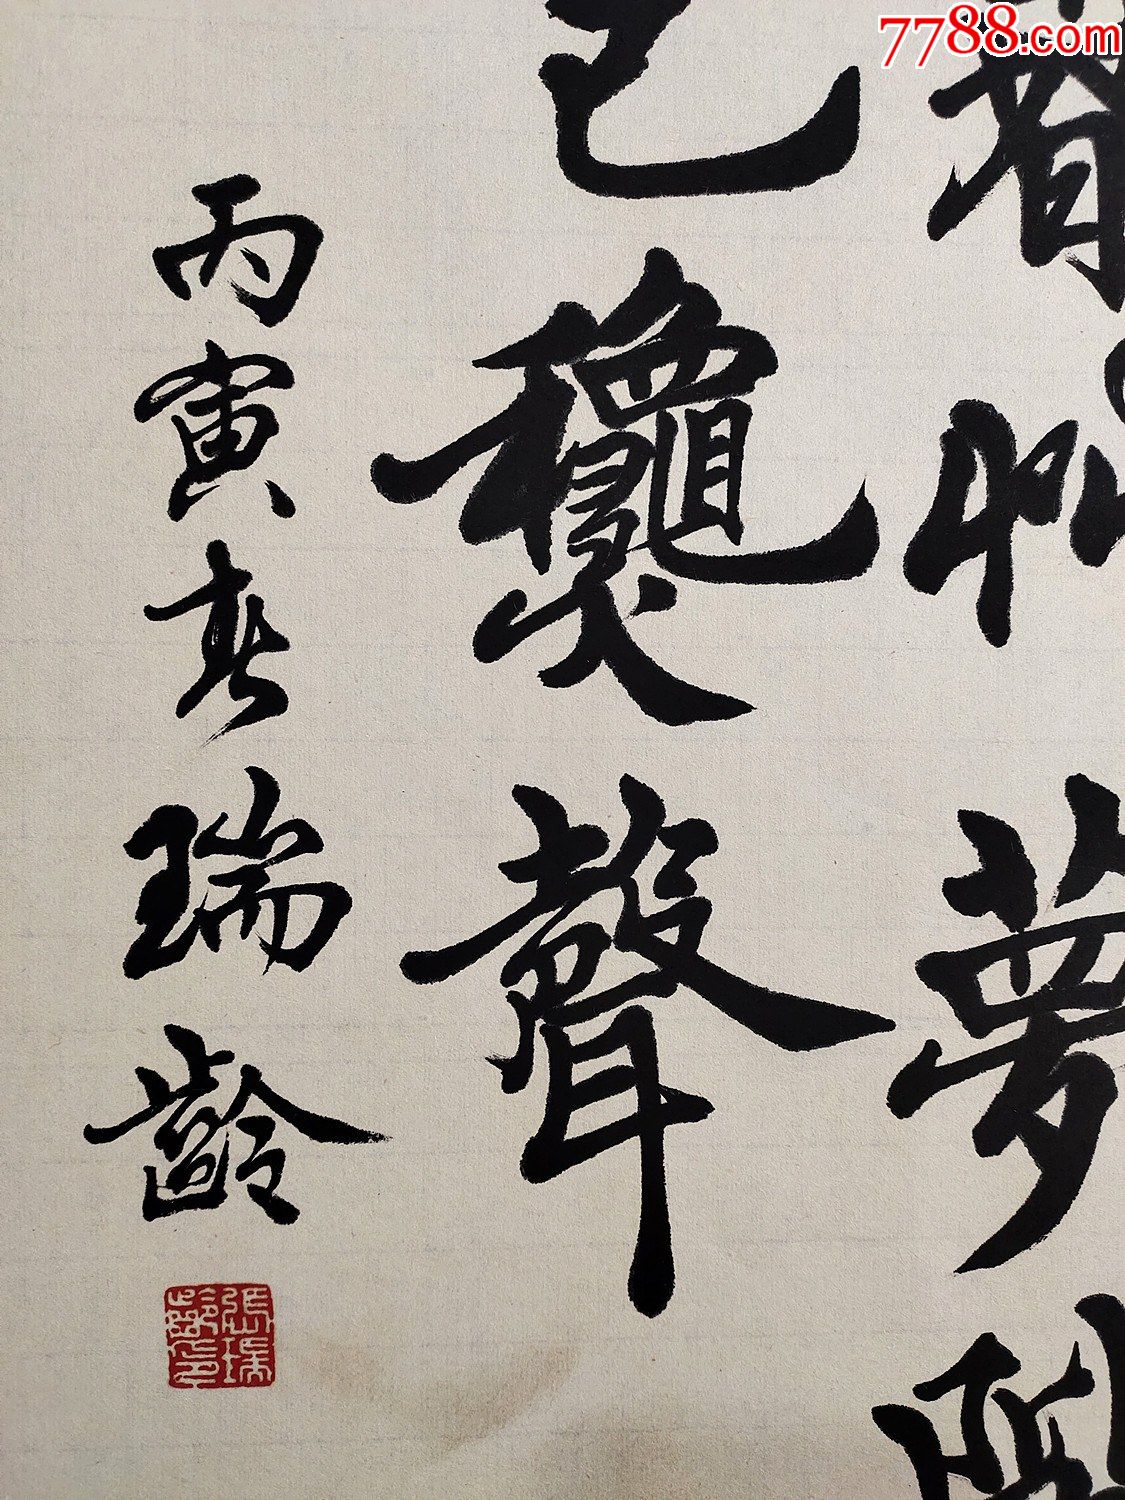 7788.com
春艸夢階
已龝聲
丙寅春瑞齡
張瑞齡印